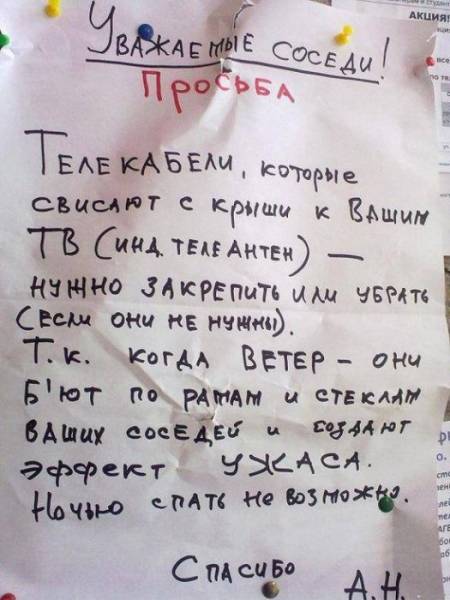 Уважаемые соседи!
Просьба
Телекабели, которые
свисают с крыши к Вашим
ТВ (инд. телеантен) —
нужно закрепить или убрать
(если они не нужны).
Т.к. когда ветер – они
б'ют по рамам и стеклам
ваших соседей и создают
эффект УЖАСА.
Ночью спать не возможно.
Спасибо
А.Н.
АКЦИЯ!